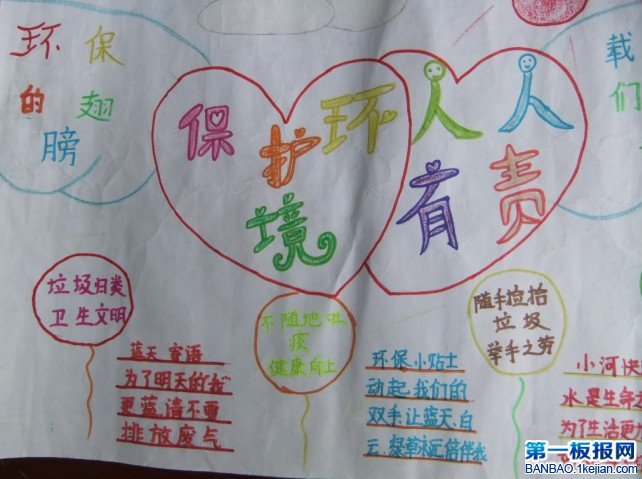 环保
的翅
膀
保护环
境
人人
有责
载
们
垃圾归类
卫生文明
不随地吐
痰
健康向上
随手捡拾
垃圾
举手之劳
蓝天寄语
为了明天的
更蓝,请不要
排放废气
环保小贴士
动起我们的
双手,让蓝天.白
云.绿草永远陪伴我
小河快
水是生命之
为了生活更
第一板报网
BANBAO.1kejian.com